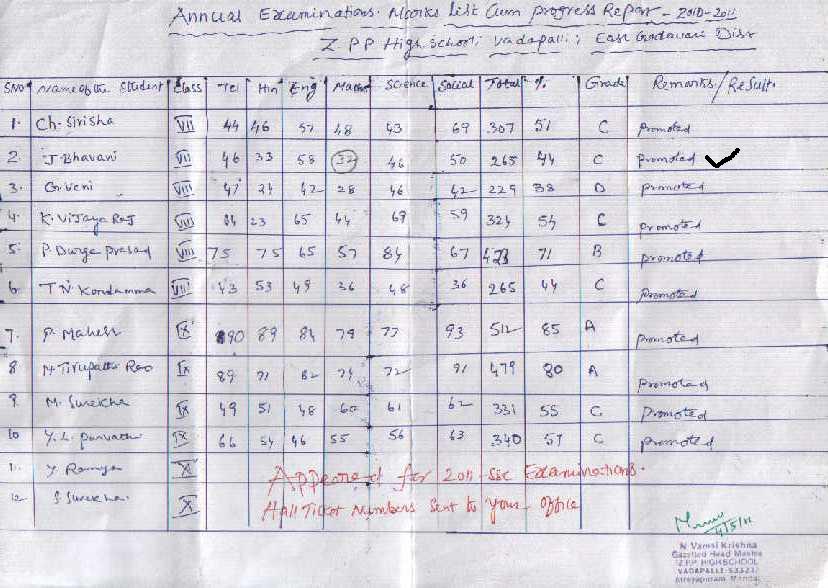 Annual Examinations. Marks List Cum Progress Report - 2010-2011
Z.P.P High School, Vadapalli, East Godavari Dist
SNo Name of the Student Class Tel Hin Eng Maths Science Social Total % Grade Remarks/Result.
1. Ch. Sirisha VII 44 46 57 48 43 69 307 51 C Promoted
2 J. Bhavani VII 46 33 58 32 46 50 265 44 C Promoted
3. G. Veni VIII 47 24 42 28 46 42 229 38 D Promoted
4. K. Vijaya Raj VIII 23 65 44 69 59 324 54 C Promoted
5. P. Durga Prasad VIII 75 75 65 57 84 67 423 71 B Promoted
6. T N Kondamma VIII 43 53 49 36 48 36 265 44 C Promoted
7. P. Mahesh IX 90 89 84 79 77 93 512 85 A Promoted
8 N. Tirupathi Rao IX 89 71 82 72 91 479 80 A Promoted
9 M. Surekha IX 49 51 48 60 61 62 331 55 C Promoted
10 Y. L. Parvathi IX 66 54 46 55 56 63 340 57 C Promoted
11 Y Ramya X Appeared for 2011-SSC Examinations.
12 S Surekha X Hall Ticket Numbers Sent to your Office
4/5/11
N Vamsi Krishna
Gazetted Head Master
Z.P.P HIGHSCHOOL
VADAPALLI-533237
Atreyapuram Mandal